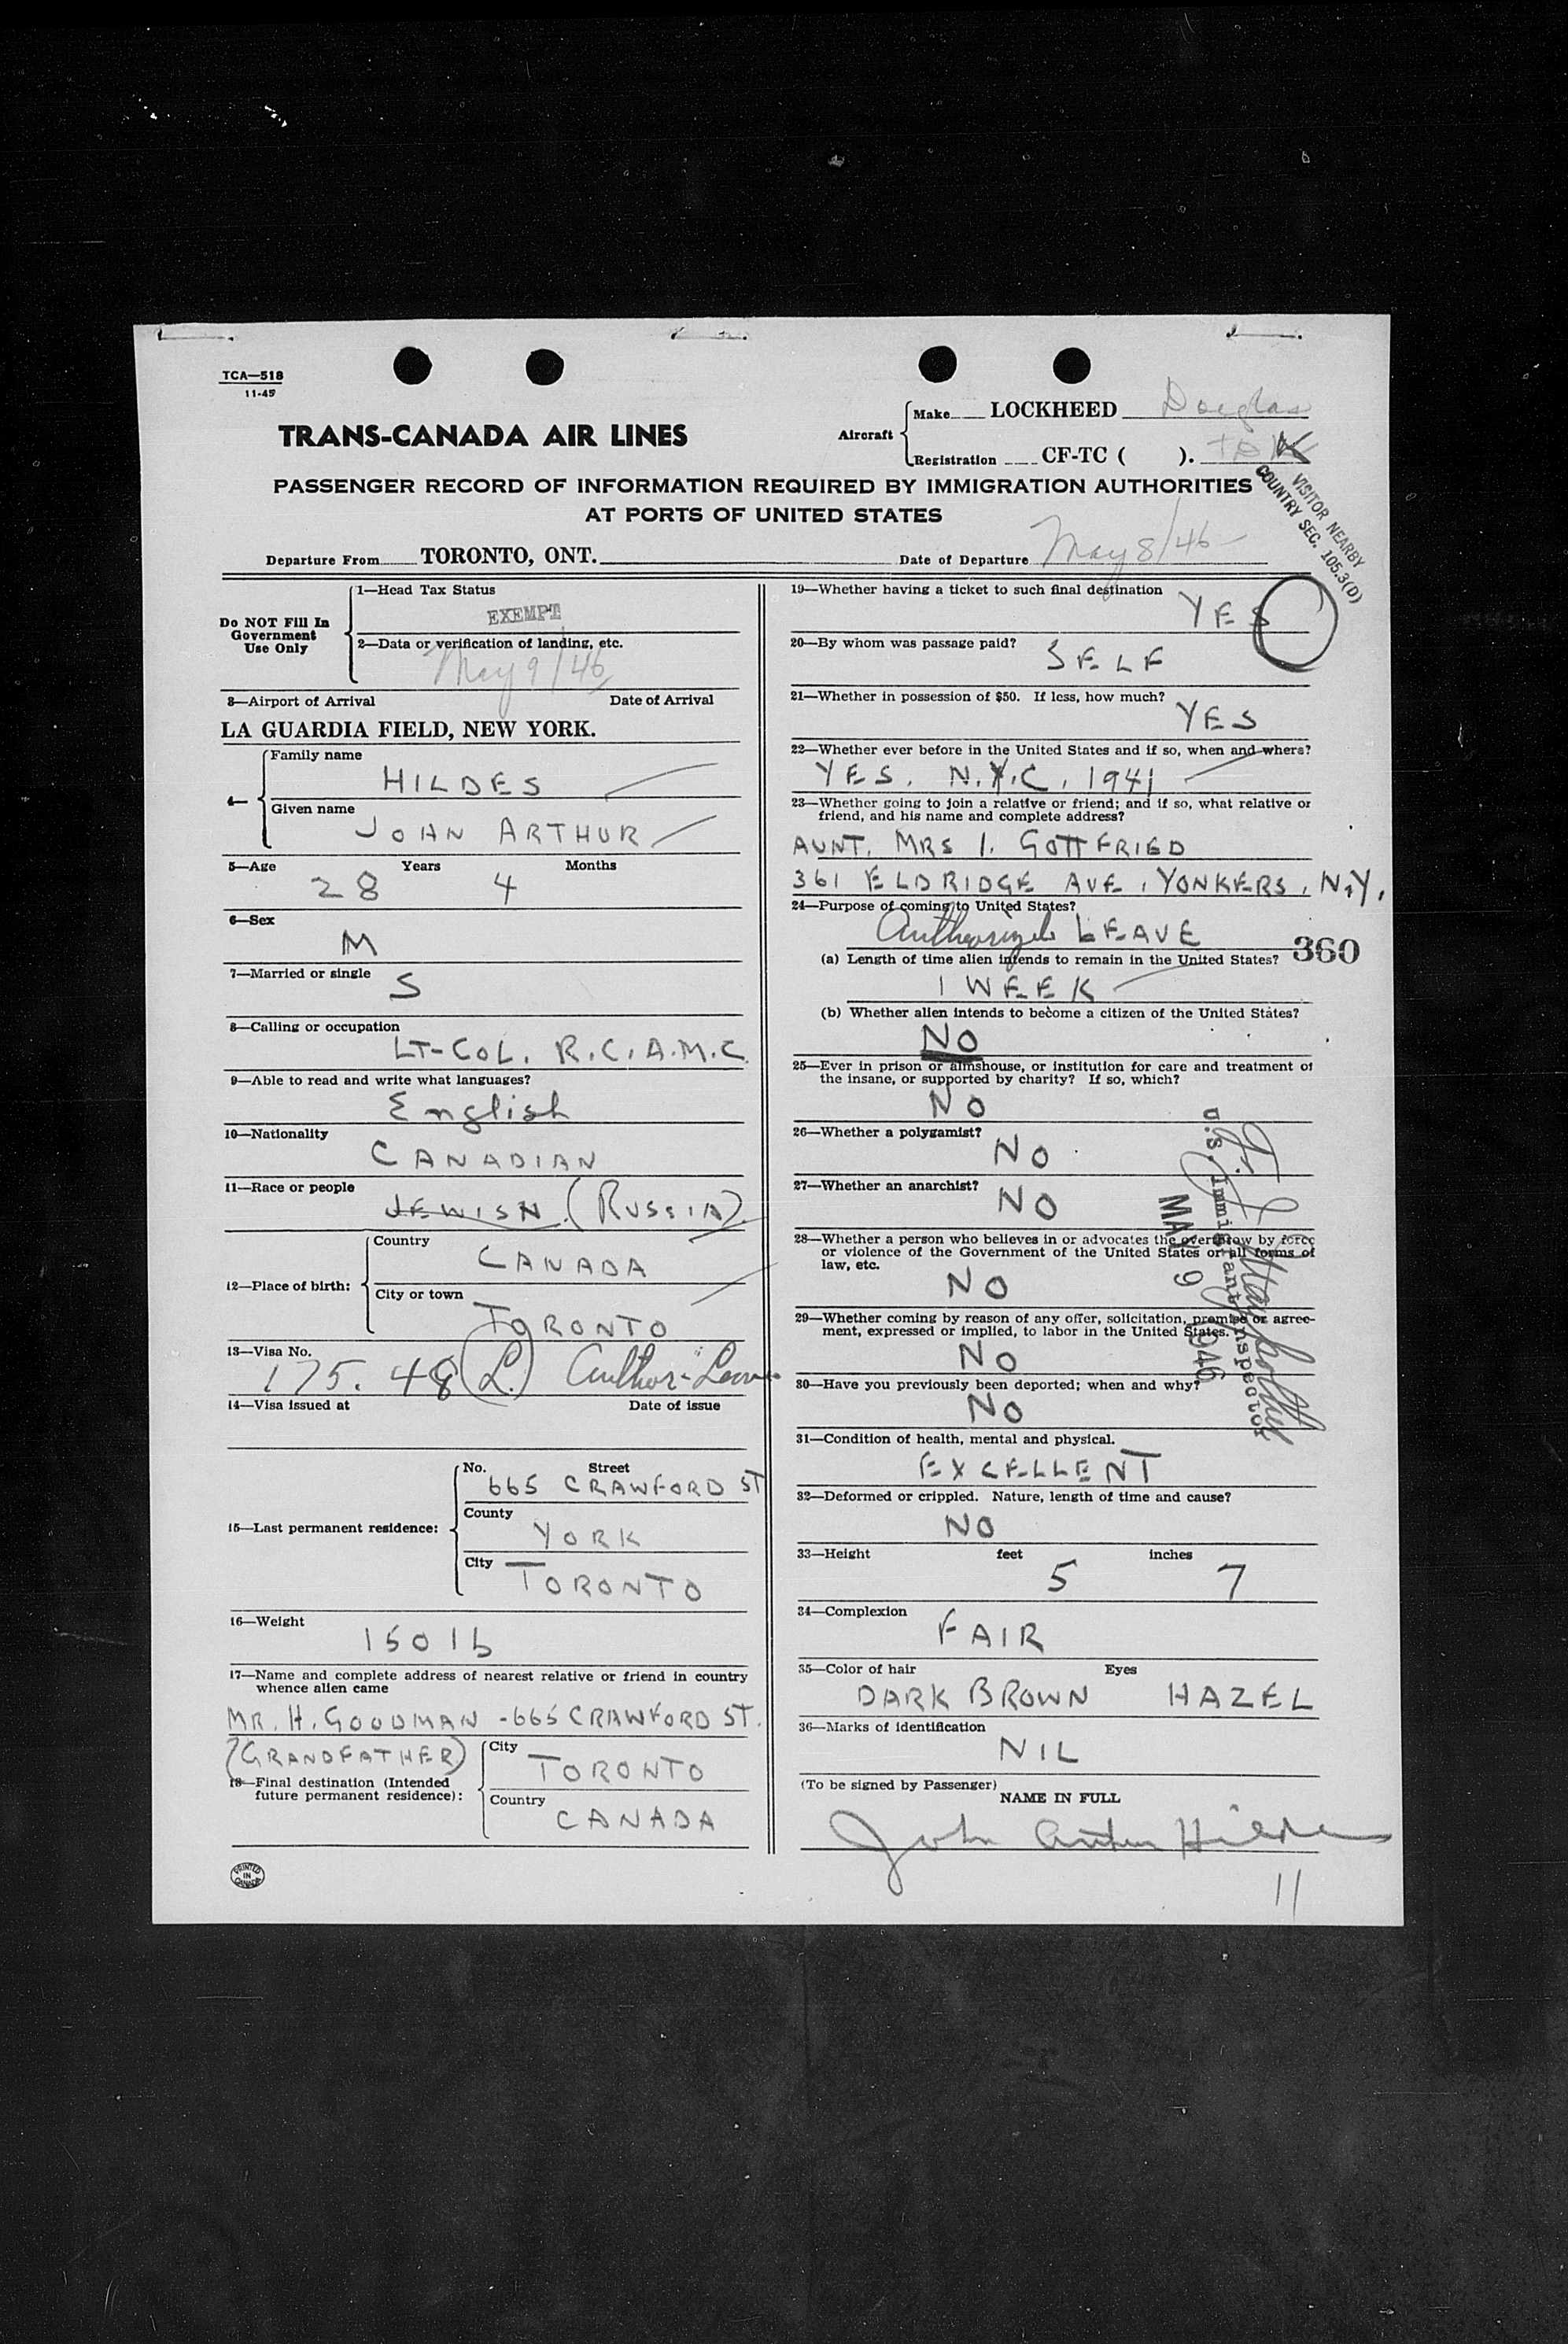 TCA—518
11-45
TRANS-CANADA AIR LINES
Aircraft
Make LOCKHEED Douglas
Registration CF-TC ( ).
VISITOR NEARBY
COUNTRY SEC. 105.3(D)
PASSENGER RECORD OF INFORMATION REQUIRED BY IMMIGRATION AUTHORITIES
AT PORTS OF UNITED STATES
Departure From TORONTO, ONT.
Date of Departure May 8/46
Do NOT Fill In
Government
Use Only
1—Head Tax Status
EXEMPT
2—Data or verification of landing, etc.
May 9/46
3—Airport of Arrival Date of Arrival
LA GUARDIA FIELD, NEW YORK.
4—
Family name
HILDES
Given name
JOHN ARTHUR
5—Age Years Months
28 4
6—Sex
M
7—Married or single
S
8—Calling or occupation
LT-COL. R.C.A.M.C.
9—Able to read and write what languages?
English
10—Nationality
CANADIAN
11—Race or people
JEWISH (RUSSIA)
12—Place of birth:
Country
CANADA
City or town
TORONTO
13—Visa No.
175.48 (L.)
14—Visa issued at Date of issue
15—Last permanent residence:
No. Street
665 CRAWFORD ST
County
YORK
City
TORONTO
16—Weight
150 lb
17—Name and complete address of nearest relative or friend in country
whence alien came
MR. H. GOODMAN - 665 CRAWFORD ST.
(GRANDFATHER)
18—Final destination (Intended
future permanent residence):
City
TORONTO
Country
CANADA
PRINTED
IN
CANADA
19—Whether having a ticket to such final destination
YES
20—By whom was passage paid?
SELF
21—Whether in possession of $50. If less, how much?
YES
22—Whether ever before in the United States and if so, when and where?
YES. N.Y.C. 1941
23—Whether going to join a relative or friend; and if so, what relative or
friend, and his name and complete address?
AUNT. MRS I. GOTTFRIED
361 ELDRIDGE AVE, YONKERS, N.Y.
24—Purpose of coming to United States?
Authorized LEAVE
360
(a) Length of time alien intends to remain in the United States?
1 WEEK
(b) Whether alien intends to become a citizen of the United States?
NO
25—Ever in prison or almshouse, or institution for care and treatment of
the insane, or supported by charity? If so, which?
NO
26—Whether a polygamist?
NO
27—Whether an anarchist?
NO
28—Whether a person who believes in or advocates the overthrow by force
or violence of the Government of the United States or all forms of
law, etc.
NO
29—Whether coming by reason of any offer, solicitation, promise or agree-
ment, expressed or implied, to labor in the United States.
NO
30—Have you previously been deported; when and why?
NO
U.S. Immigrant Inspector
MAY 9 1946
31—Condition of health, mental and physical.
EXCELLENT
32—Deformed or crippled. Nature, length of time and cause?
NO
33—Height feet inches
5 7
34—Complexion
FAIR
35—Color of hair Eyes
DARK BROWN HAZEL
36—Marks of identification
NIL
(To be signed by Passenger)
NAME IN FULL
John Arthur Hildes
11